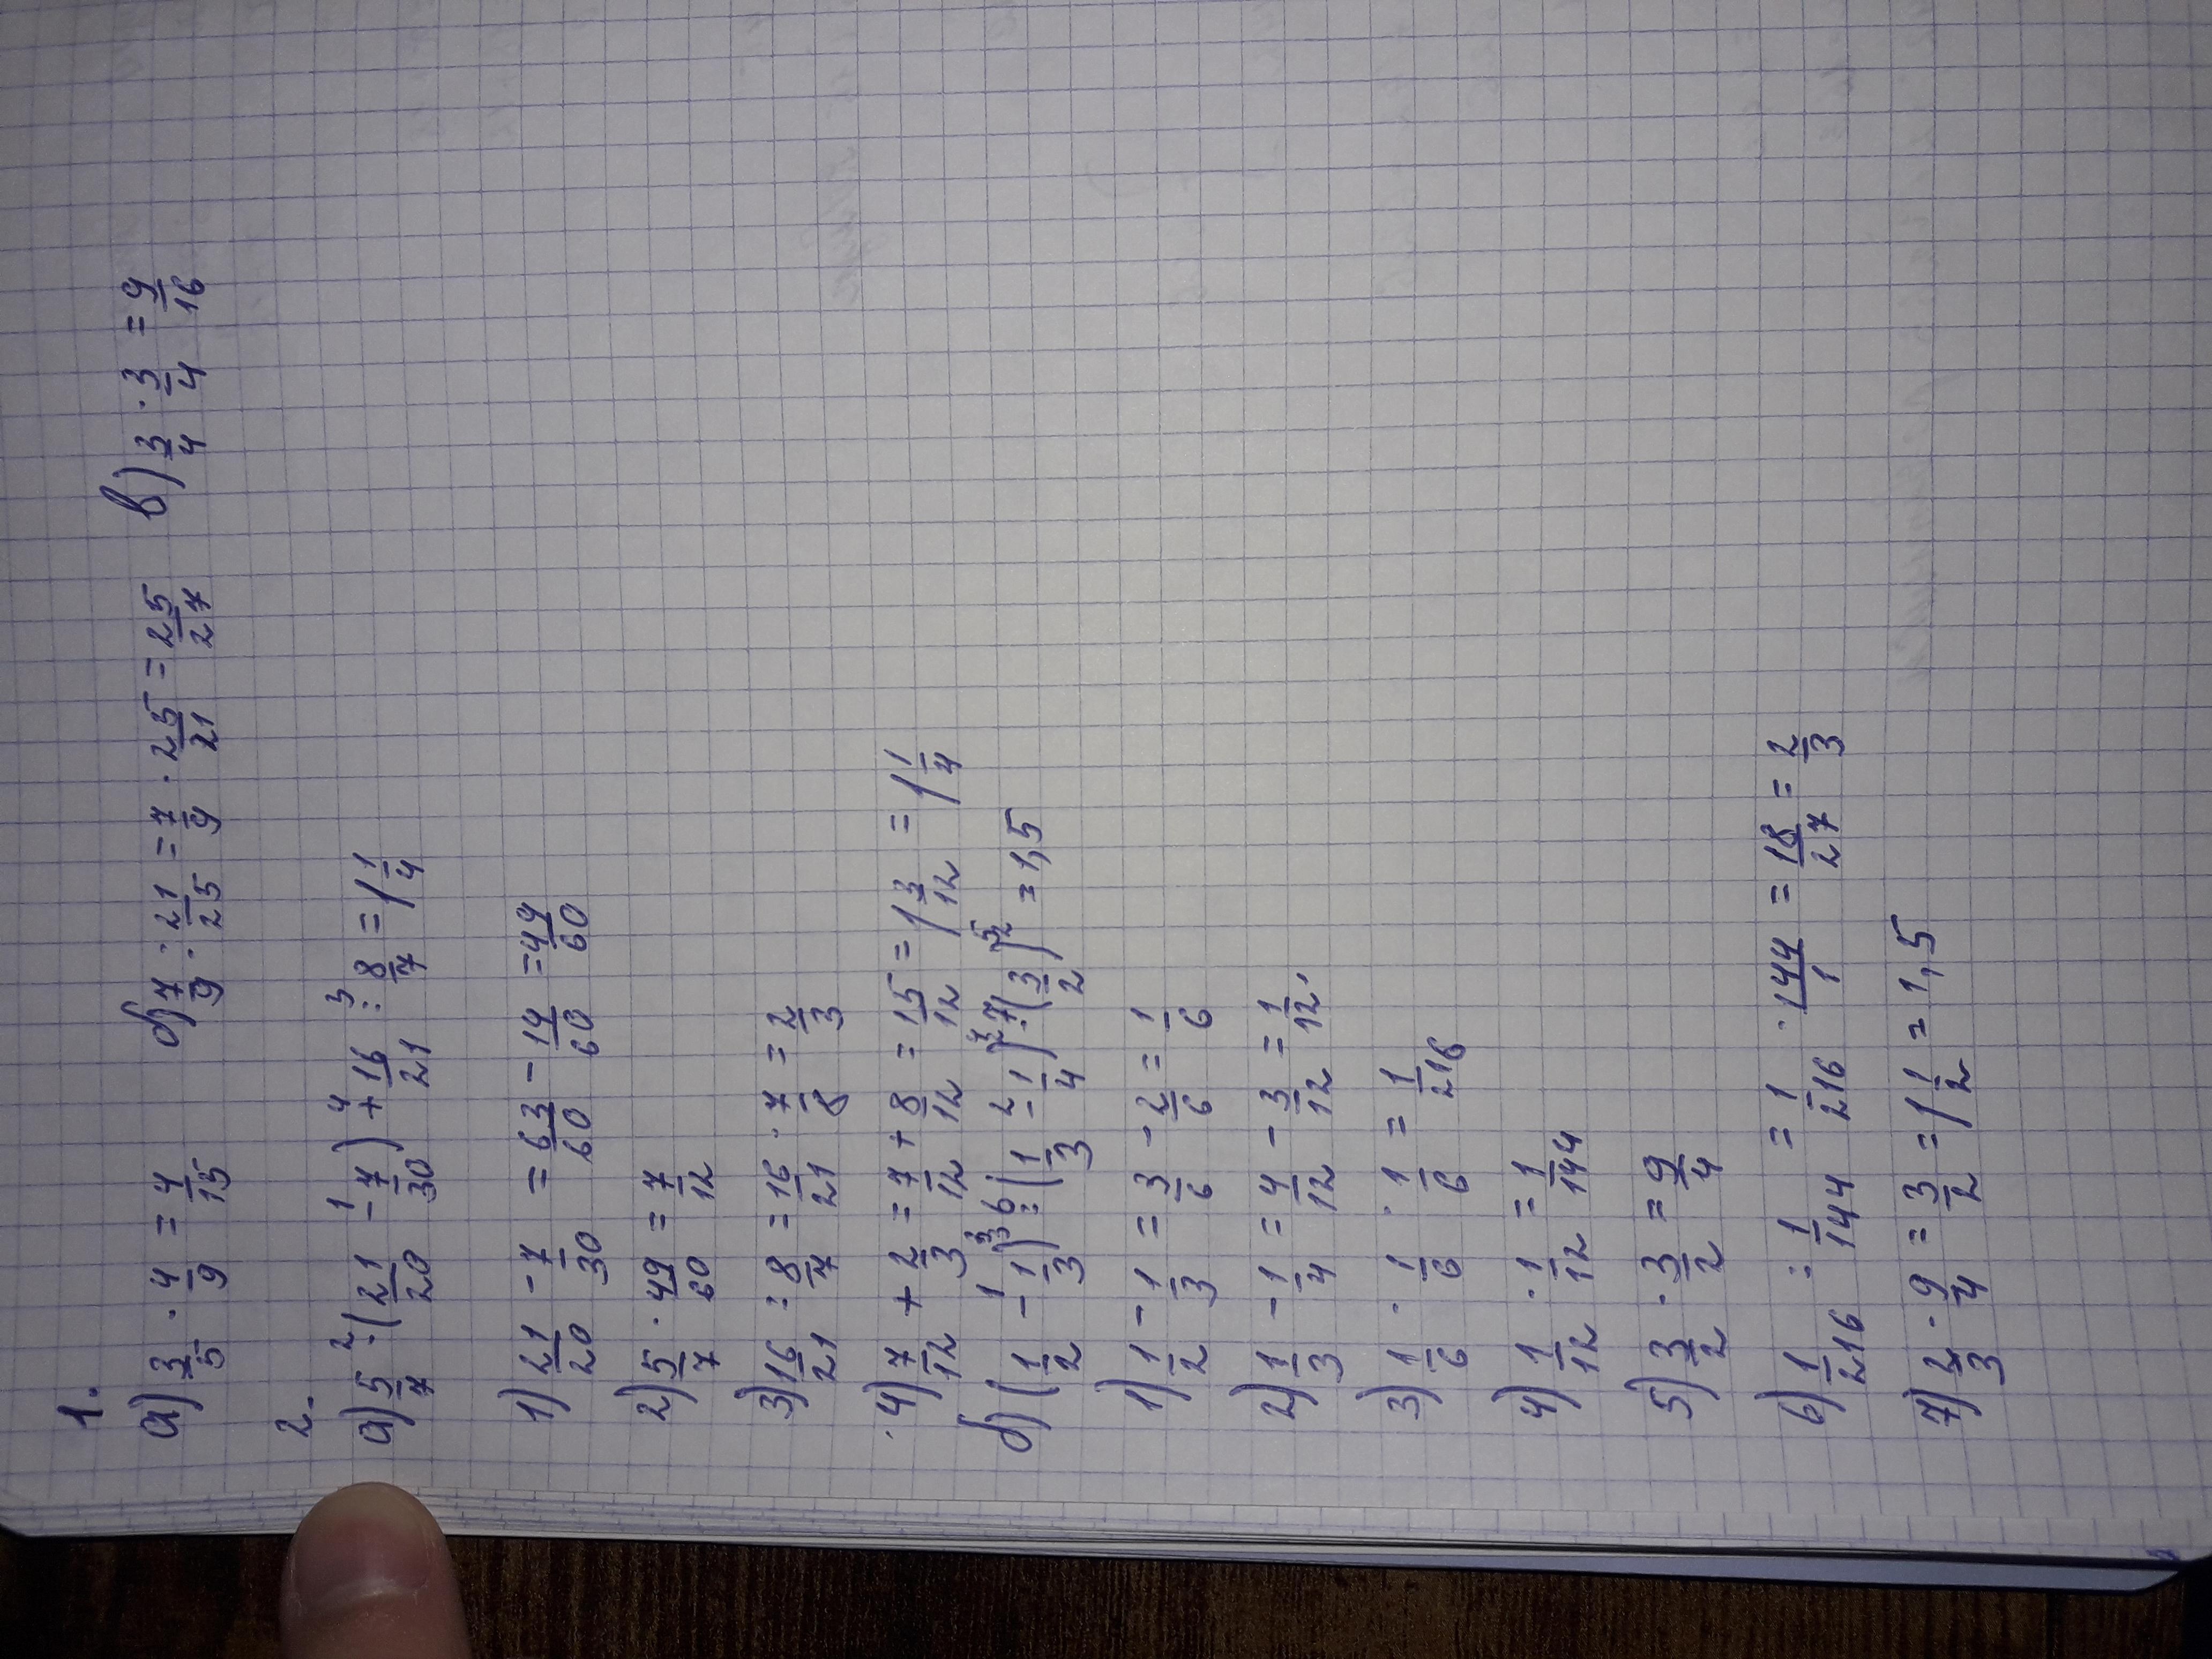 1.
а) 3/5 · 4/9 = 4/15 б) 7/9 : 21/25 = 7/9 · 25/21 = 25/27 в) 3/4 · 3/4 = 9/16
2.
а) 5/7 ·² (21/20 -¹ 7/30) +⁴ 16/21 :³ 8/7 = 1 1/4
1) 21/20 - 7/30 = 63/60 - 14/60 = 49/60
2) 5/7 · 49/60 = 7/12
3) 16/21 : 8/7 = 16/21 · 7/8 = 2/3
4) 7/12 + 2/3 = 7/12 + 8/12 = 15/12 = 1 3/12 = 1 1/4
б) (1/2 -¹ 1/3)³ :⁶ (1/3 -² 1/4)² ·⁷ (3/2)² = 1,5
1) 1/2 - 1/3 = 3/6 - 2/6 = 1/6
2) 1/3 - 1/4 = 4/12 - 3/12 = 1/12,
3) 1/6 · 1/6 · 1/6 = 1/216
4) 1/12 · 1/12 = 1/144
5) 3/2 · 3/2 = 9/4
6) 1/216 : 1/144 = 1/216 · 144/1 = 18/27 = 2/3
7) 2/3 · 9/4 = 3/2 = 1 1/2 = 1,5